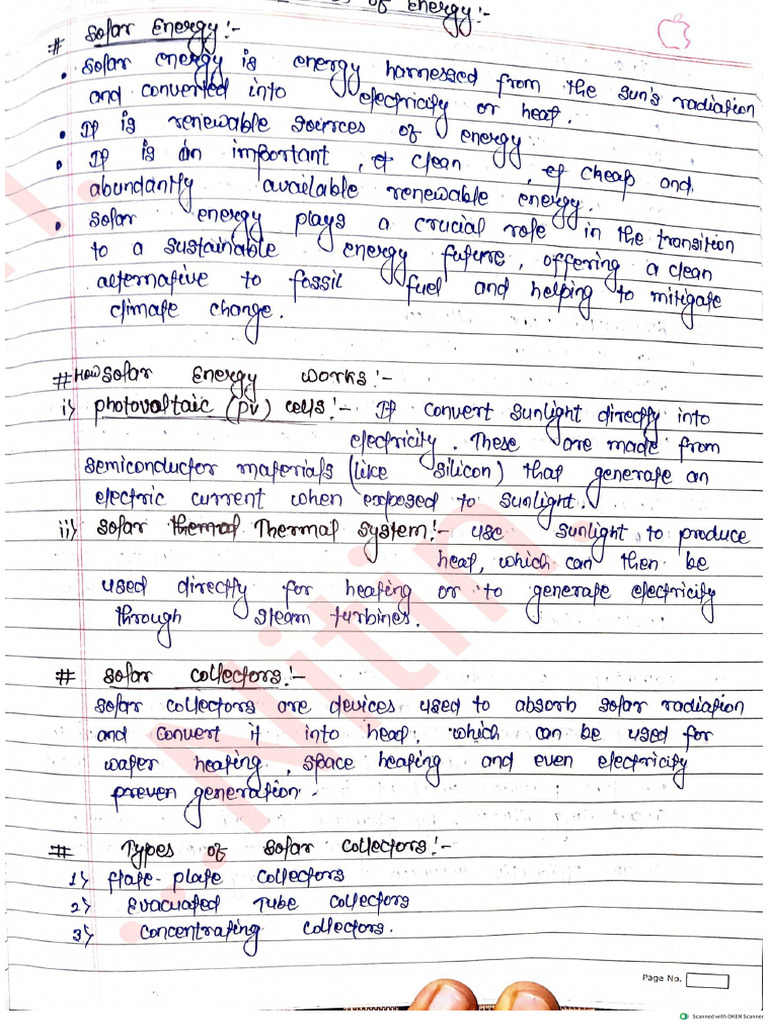 of energy:-
# Solar Energy:-
• Solar energy is energy harnessed from the sun's radiation
and converted into electricity or heat.
• It is renewable sources of energy.
• It is an important, & clean, & cheap and
abundantly available renewable energy.
• Solar energy plays a crucial role in the transition
to a sustainable energy future, offering a clean
alternative to fossil fuel and helping to mitigate
climate change.
# How Solar Energy works:-
i) photovoltaic (pv) cells:- It convert sunlight directly into
electricity. These are made from
semiconductor materials (like silicon) that generate an
electric current when exposed to sunlight.
ii) Solar themal Thermal System:- use sunlight to produce
heat, which can then be
used directly for heating or to generate electricity
through steam turbines.
# Solar Collectors:-
Solar collectors are devices used to absorb solar radiation
and convert it into heat, which can be used for
water heating, space heating and even electricity
preven generation.
# Types of Solar Collectors:-
1) flate-plate collectors
2) Evacuated Tube collectors
3) Concentrating collectors.
Nitin
Page No.
Scanned with OKEN Scanner